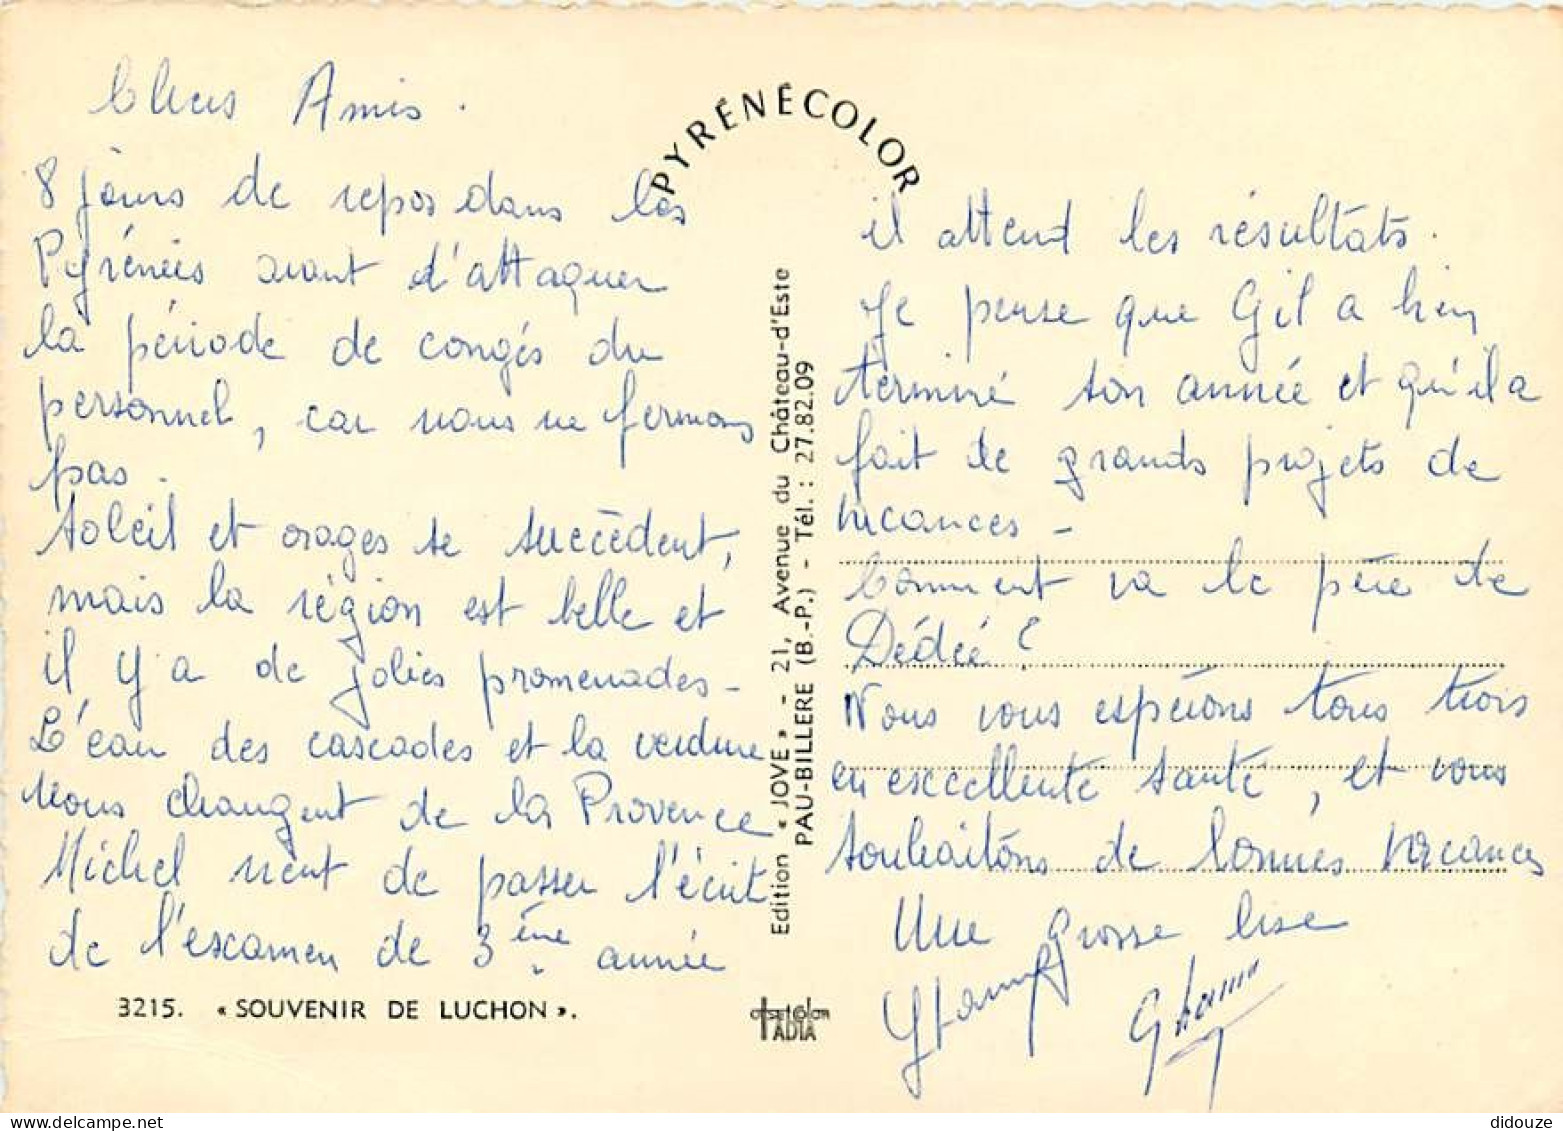 Chers Amis.
8 jours de repos dans les
Pyrénées avant d'attaquer
la période de congés du
personnel, car nous ne fermons
pas.
Soleil et orages se succèdent,
mais la région est belle et
il y a de jolies promenades -
L'eau des cascades et la verdure
nous changent de la Provence
Michel vient de passer l'écrit
de l'examen de 3ème année
3215. « SOUVENIR DE LUCHON ».
PYRÉNÉCOLOR
Edition « JOVE » - 21, Avenue du Château-d'Este
PAU-BILLERE (B.-P.) - Tél. : 27.82.09
offset color
TADIA
il attend les résultats.
Je pense que Gil a bien
terminé son année et qu'il a
fait de grands projets de
vacances -
Comment va le père de
Dédée ?
Nous vous espérons tous trois
en excellente santé, et vous
souhaitons de bonnes vacances
Une grosse bise
didouze